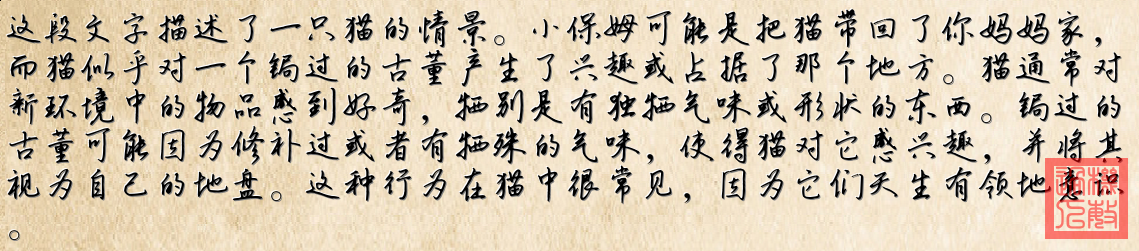 这段文字描述了一只猫的情景。小保姆可能是把猫带回了你妈妈家，
而猫似乎对一个锔过的古董产生了兴趣或占据了那个地方。猫通常对
新环境中的物品感到好奇，特别是有独特气味或形状的东西。锔过的
古董可能因为修补过或者有特殊的气味，使得猫对它感兴趣，并将其
视为自己的地盘。这种行为在猫中很常见，因为它们天生有领地意识
。